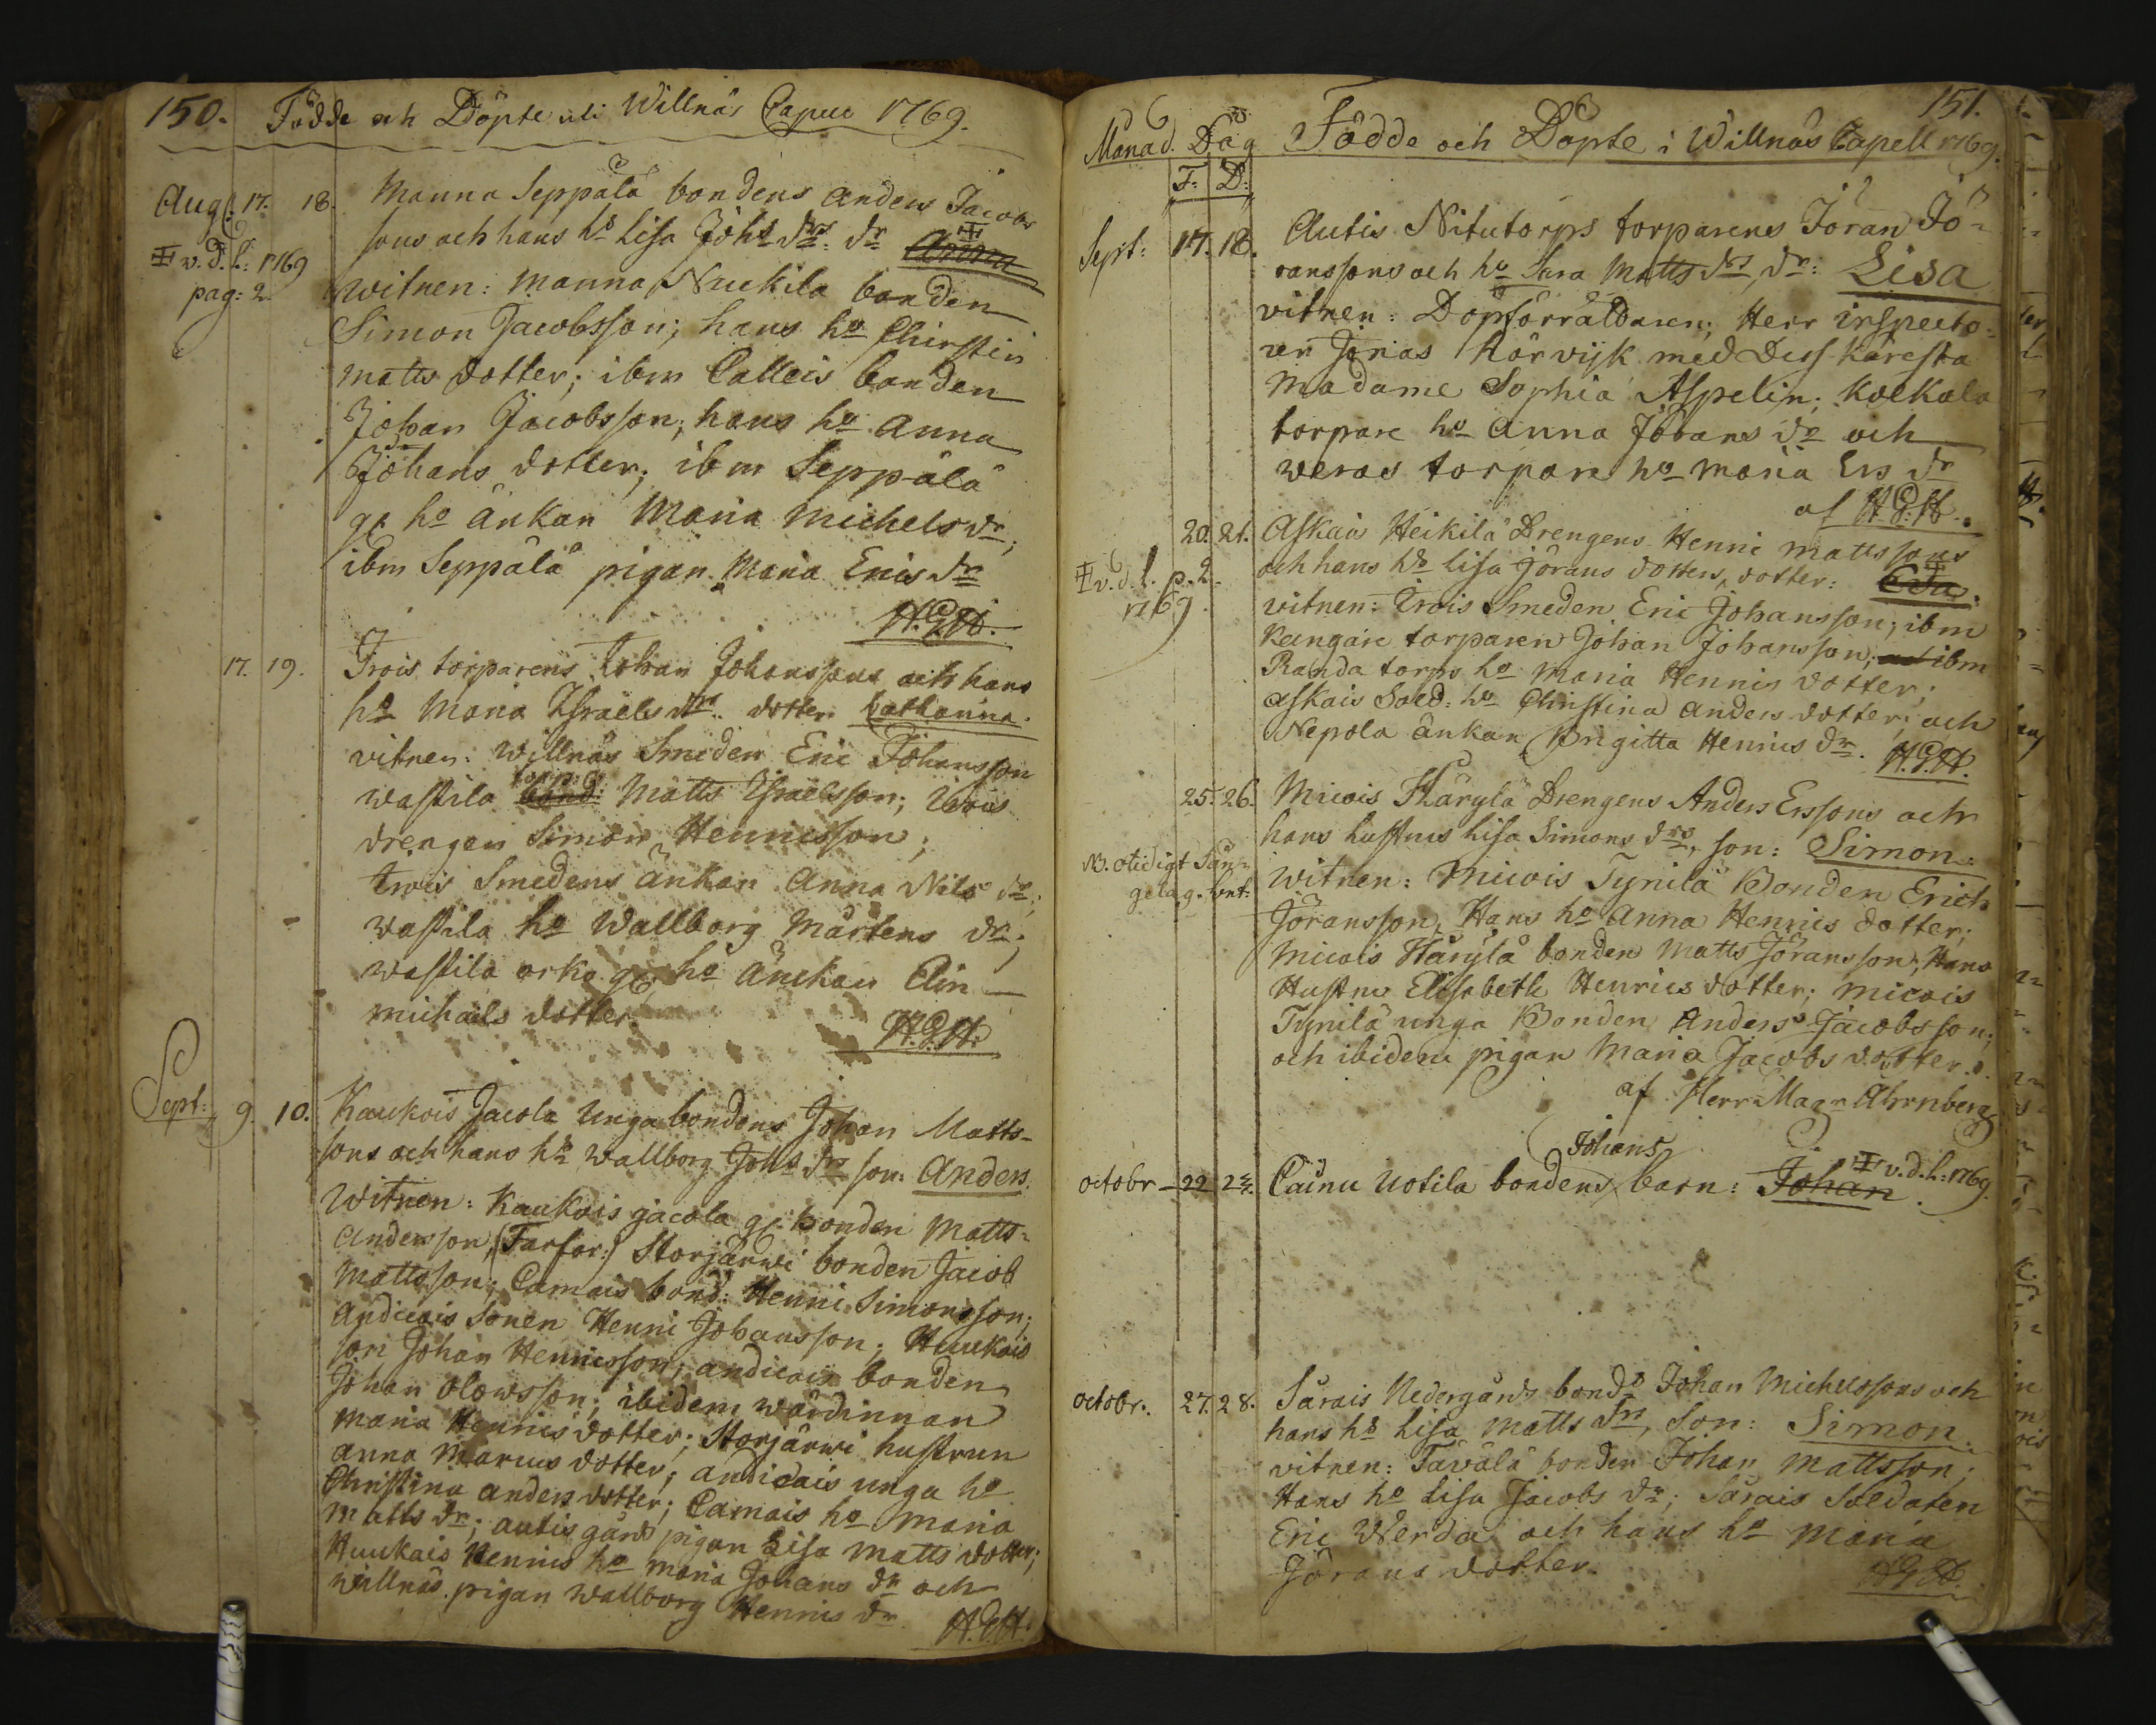 150. Födde och Döpte uti Willnäs Capell 1769.
Aug: 17. 18. Manna Seppälä bondens Anders Jacobs
sons och hans hs Lisa Johs drs: dr Anna
v. d. l: 1769
pag: 2
witnen: Manna Nuckila bonden
Simon Jacobsson; hans ho Chirstin
Matts dotter; ibm Calleis bonden
Johan Jacobsson; hans ho Anna
Johans dotter; ibm Seppälä
gl ho änkan Maria Michels dr;
ibm Seppälä pigan Maria Erics dr
H.G.H.
17. 19. Trois torparens Johan Johanssons och hans
hs Maria Israels drs dotter Catharina.
vitnen: Willnäs Smeden Eric Johansson
torp:
wastila bond: Matts Israelsson; Trois
drengen Simon Henricsson;
Trois Smedens änkan Anna Nils dr;
wastila ho Wallborg Mårtens dr;
wastila gl ho änckan Elin
michaels dotter.
H.G.H.
Sept: 9. 10. Kaukois Jacola Unga bondens Johan Matts-
sons och hans hs Wallborg Johs drs son: Anders.
Witnen: Kaukois jacola gl bonden Matts
Andersson, (Farfar:) Storjärwi bonden Jacob
Mattsson; Camais bond: Henric Simonsson;
Andicais Sonen Henric Johansson; Huukais
son Johan Henricsson; andicais bonden
Johan Olowsson; ibidem wärdinnan
Maria Henrics dotter; Storjärwi hustrun
Anna Marcus dotter; andicais unga ho
Christina anders dotter; Camais ho Maria
Matts dr; autis gård pigan Lisa Matts dotter;
Huukais Henrics ho Maria Johans dr och
Willnäs pigan Wallborg Henrics dr.
H.G.H.
151.
Månad. Dag Födde och Döpte i Willnäs Capell 1769.
F: D:
Sept: 17. 18. Autis Nitutorps torparens Jöran Jö-
ranssons och hs Sara Matts drs, dr: Lisa
vitnen: Herr inspecto-
ren Jonas Hörvijk med Dess Käresta
Madame Sophia Aspelin; Kolkala
torpare ho Anna Johans dr och
weras torpare ho Maria Ers dr
af H.G.H.
20. 21. Askais Heikilä Drengens Henric Mattssons
och hans hs Lisa Jörans dotters, dotter: Eva.
v. d. l. p. 2.
1769
vitnen: Trois Smeden Eric Johansson; ibm
Kangare torparen Johan Johansson; ibm
Randa torps ho Maria Henrics dotter;
askais Sold: ho Christina anders dotter; och
Nepola änkan Brigitta Henrics dr. H.G.H.
25. 26. Micois Häryla Drengens Anders Erssons och
hans hustrus Lisa Simons drs, son: Simon.
NB. otidigt Sän-
gelag. bot:
Witnen: Micois Tynilä Bonden Erich
Jöransson, Hans ho Anna Henrics dotter;
Micois Härylä bonden Matts Jöransson, Hans
Hustru Elisabeth Henrics dotter; micois
Tynilä unga Bonden Anders Jacobsson;
och ibidem pigan Maria Jacobs dotter.
af Herr Magr Ahrnberg
Johans
octobr 22 23. Cainu Uotila bondens barn: Johan. v. d. l: 1769.
octobr. 27. 28. Särais Nedergårds bonds Johan Michelssons och
hans hs Lisa Matts drs, Son: Simon.
vitnen: Tavälä bonden Johan Mattsson;
Hans ho Lisa Jacobs dr; Särais Soldaten
Eric Werda och hans ho Maria
Jörans dotter.
H.G.H.